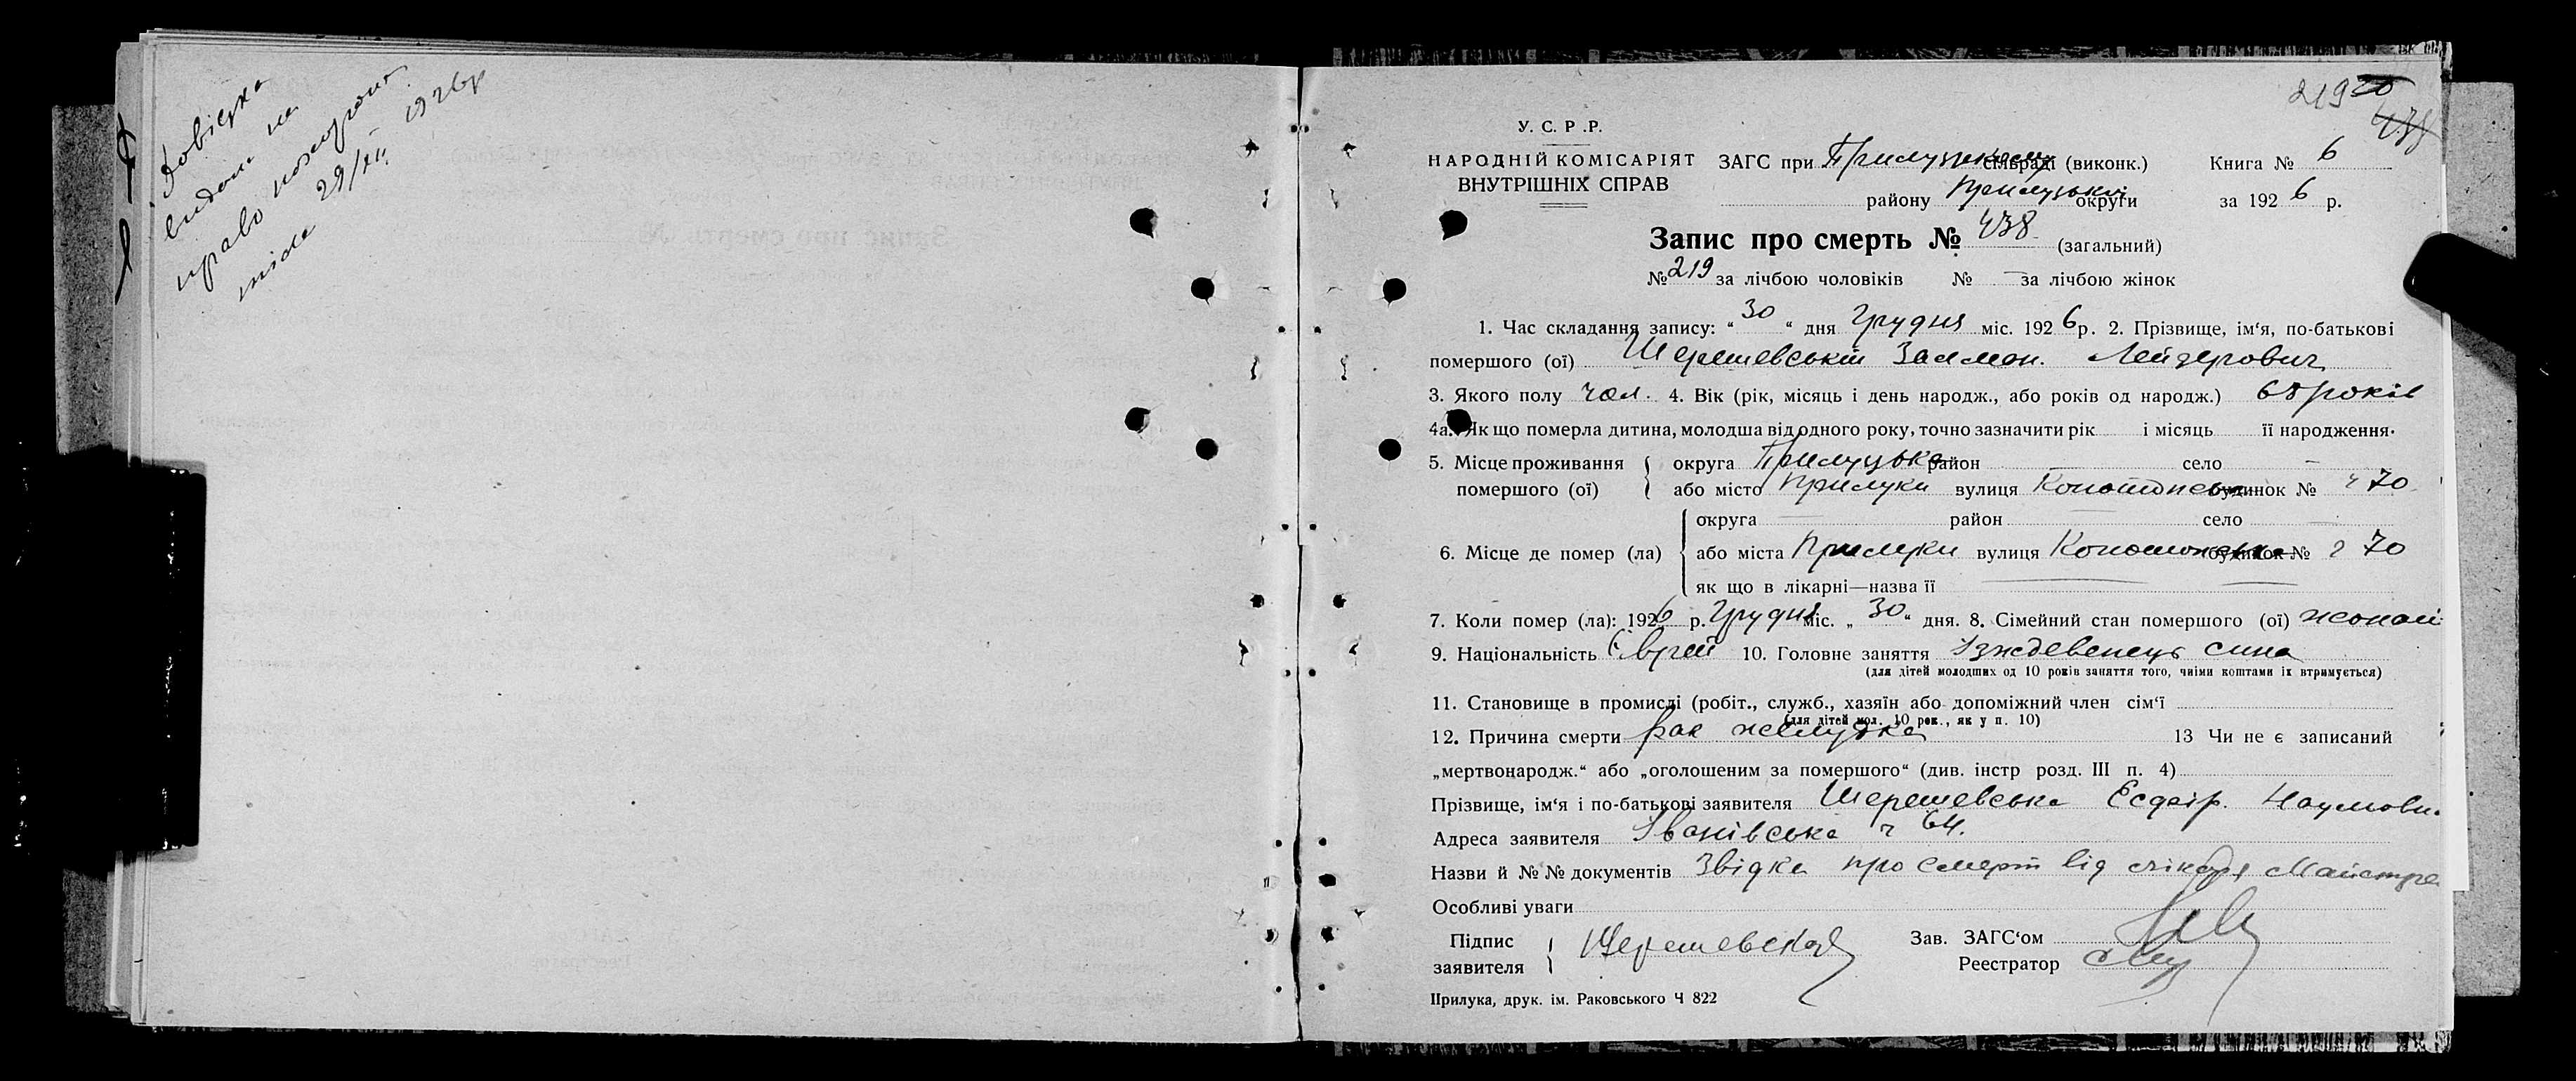 Довідка
видана на
право похорона
тіла 29/XII 1926р
219
438
У. С. Р .Р.
НАРОДНІЙ КОМІСАРІЯТ
ВНУТРІШНІХ СПРАВ
ЗАГС при Прилуцькому сільраді (виконк.) Книга № 6
району Прилуцької округи за 1926 р.
Запис про смерть № 438 (загальний)
№ 219 за лічбою чоловіків № — за лічбою жінок
1. Час складання запису: “ 30 “ дня Грудня міс. 1926 р. 2. Прізвище, ім‘я, по-батькові
помершого (ої) Шерешевській Залман. Лейзерович
3. Якого полу чол. 4. Вік (рік, місяць і день народж., або років од народж.) 68 років
4а. Як що померла дитина, молодша від одного року, точно зазначити рік і місяць її народження.
5. Місце проживання помершого (ої) { округа Прилуцька район — село —
або місто Прилуки вулиця Конотопська будинок № 70
6. Місце де помер (ла) { округа — район — село —
або міста Прилуки вулиця Конотопська будинок № 70
як що в лікарні—назва її
7. Коли помер (ла): 1926 р. Грудня міс. „ 30 “ дня. 8. Сімейний стан помершого (ої) жонат
9. Національність Єврей 10. Головне заняття Ізждевенець сина
(для дітей молодших од 10 років заняття того, чиїми коштами їх втримується)
11. Становище в промислі (робіт., служб., хазяїн або допоміжний член сім‘ї
(для дітей мол. 10 рок., як у п. 10)
12. Причина смерти рак желудка 13 Чи не є записаний
„мертвонародж.“ або „оголошеним за помершого“ (див. інстр розд. III п. 4)
Прізвище, ім‘я і по-батькові заявителя Шерешевська Есфир. Наумовн.
Адреса заявителя Іванівська ч 64.
Назви й №№ документів Звідка про смерт від лікаря Майстре
Особливі уваги
Підпис заявителя { Шерешевская
Зав. ЗАГС‘ом
Реестратор
Прилука, друк. ім. Раковського Ч 822